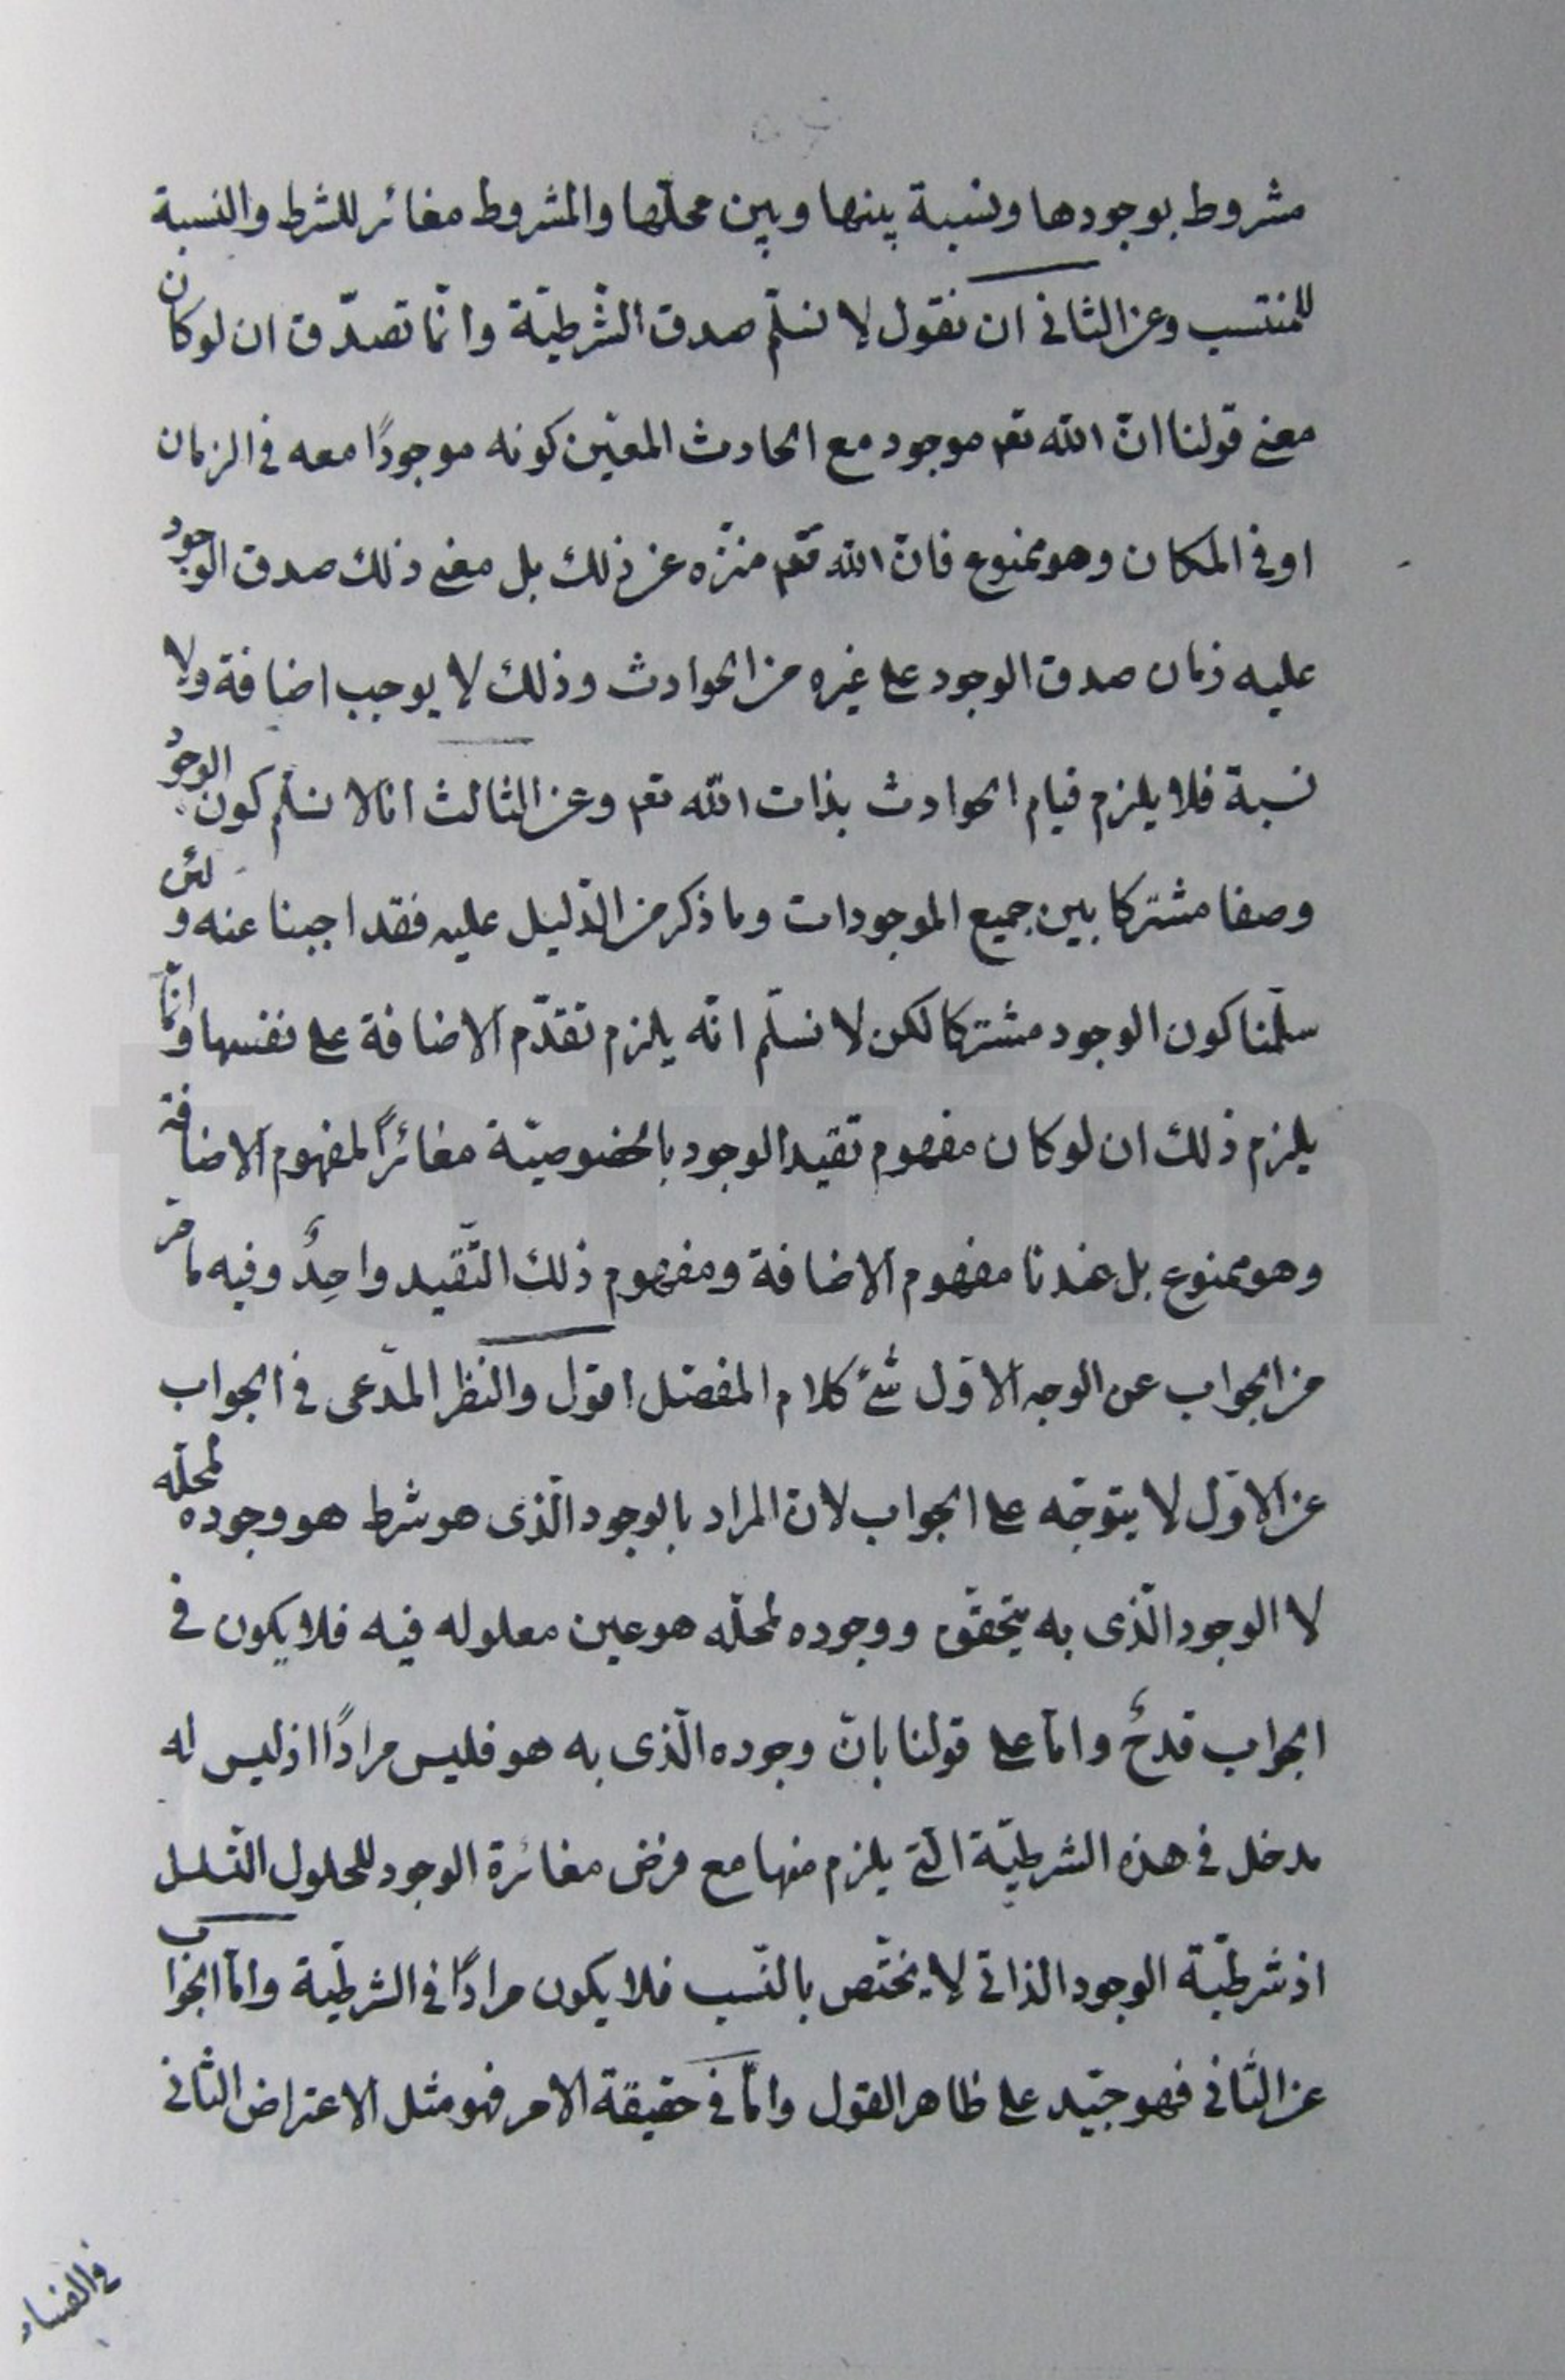 مشروط بوجودها ونسبة بينها وبين محلّها والمشروط مغائر للشرط والنسبة
للمنتسب وعن الثاني ان نقول لا نسلّم صدق الشّرطيّة وانّما تصدّق ان لو كان
معنى قولنا انّ الله تعم موجود مع الحادث المعيّن كونه موجودًا معه في الزمان
او في المكان وهو ممنوع فانّ الله تعم منزّه عن ذلك بل معنى ذلك صدق الوجود
عليه زمان صدق الوجود على غيره من الحوادث وذلك لا يوجب اضافة ولا
نسبة فلا يلزم قيام الحوادث بذات الله تعم وعن الثالث انا لا نسلّم كون الوجود
وصفا مشتركا بين جميع الموجودات وما ذكر من الدّليل عليه فقد اجبنا عنه و لئن
سلّمنا كون الوجود مشتركا لكن لا نسلّم انّه يلزم تقدّم الاضافة على نفسها وانّما
يلزم ذلك ان لو كان مفهوم تقيد الوجود بالخصوصيّة مغائرًا لمفهوم الاضافة
وهو ممنوع بل عندنا مفهوم الاضافة ومفهوم ذلك التّقيد واحِدٌ وفيه ما مرّ
من الجواب عن الوجه الاوّل شئ كلام المفضل اقول والنظر المدّعى في الجواب
عن الاوّل لا يتوجّه على الجواب لانّ المراد بالوجود الّذى هو شرط هو وجوده لمحلّه
لا الوجود الّذى به يتحقّق ووجوده لمحلّه هو عين معلوله فيه فلا يكون في
الجواب قدحٌ وامّا على قولنا بانّ وجوده الّذى به هو فليس مرادًا اذ ليس له
مدخل في هذه الشرطيّة الّتي يلزم منها مع فرض مغائرة الوجود للحلول التّسلسل
اذ شرطيّة الوجود الذاتي لا يختّص بالنّسب فلا يكون مرادًا في الشرطيّة وامّا الجواب
عن الثّاني فهو جيّد على ظاهر القول وامّا في حقيقة الامر فهو مثل الاعتراض الثّاني
في الفساد